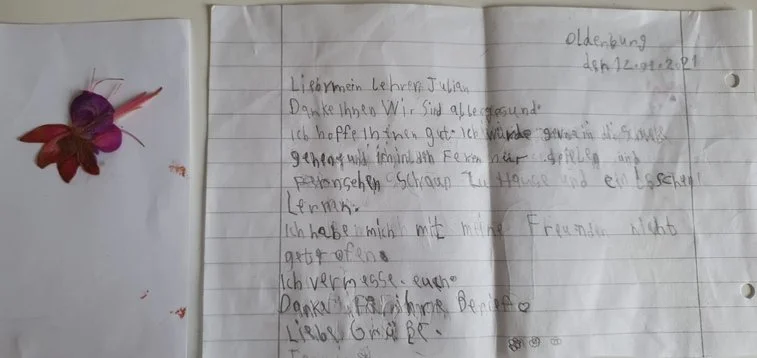 Oldenbung
den 12.01.2021
Liebermein Lehrer Julian
Danke Ihnen Wir sind alle gesund.
Ich hoffe Ihnen gut. Ich würde gern in die
gehen und Fern nur spielen und
Fernsehen schauen Zu Hause und ein bsschen
Lernen.
Ich habe mich mit meine Freunden nicht
getrofen.
Ich vermesse euch.
Danke Für ihre
Liebe Grüße.